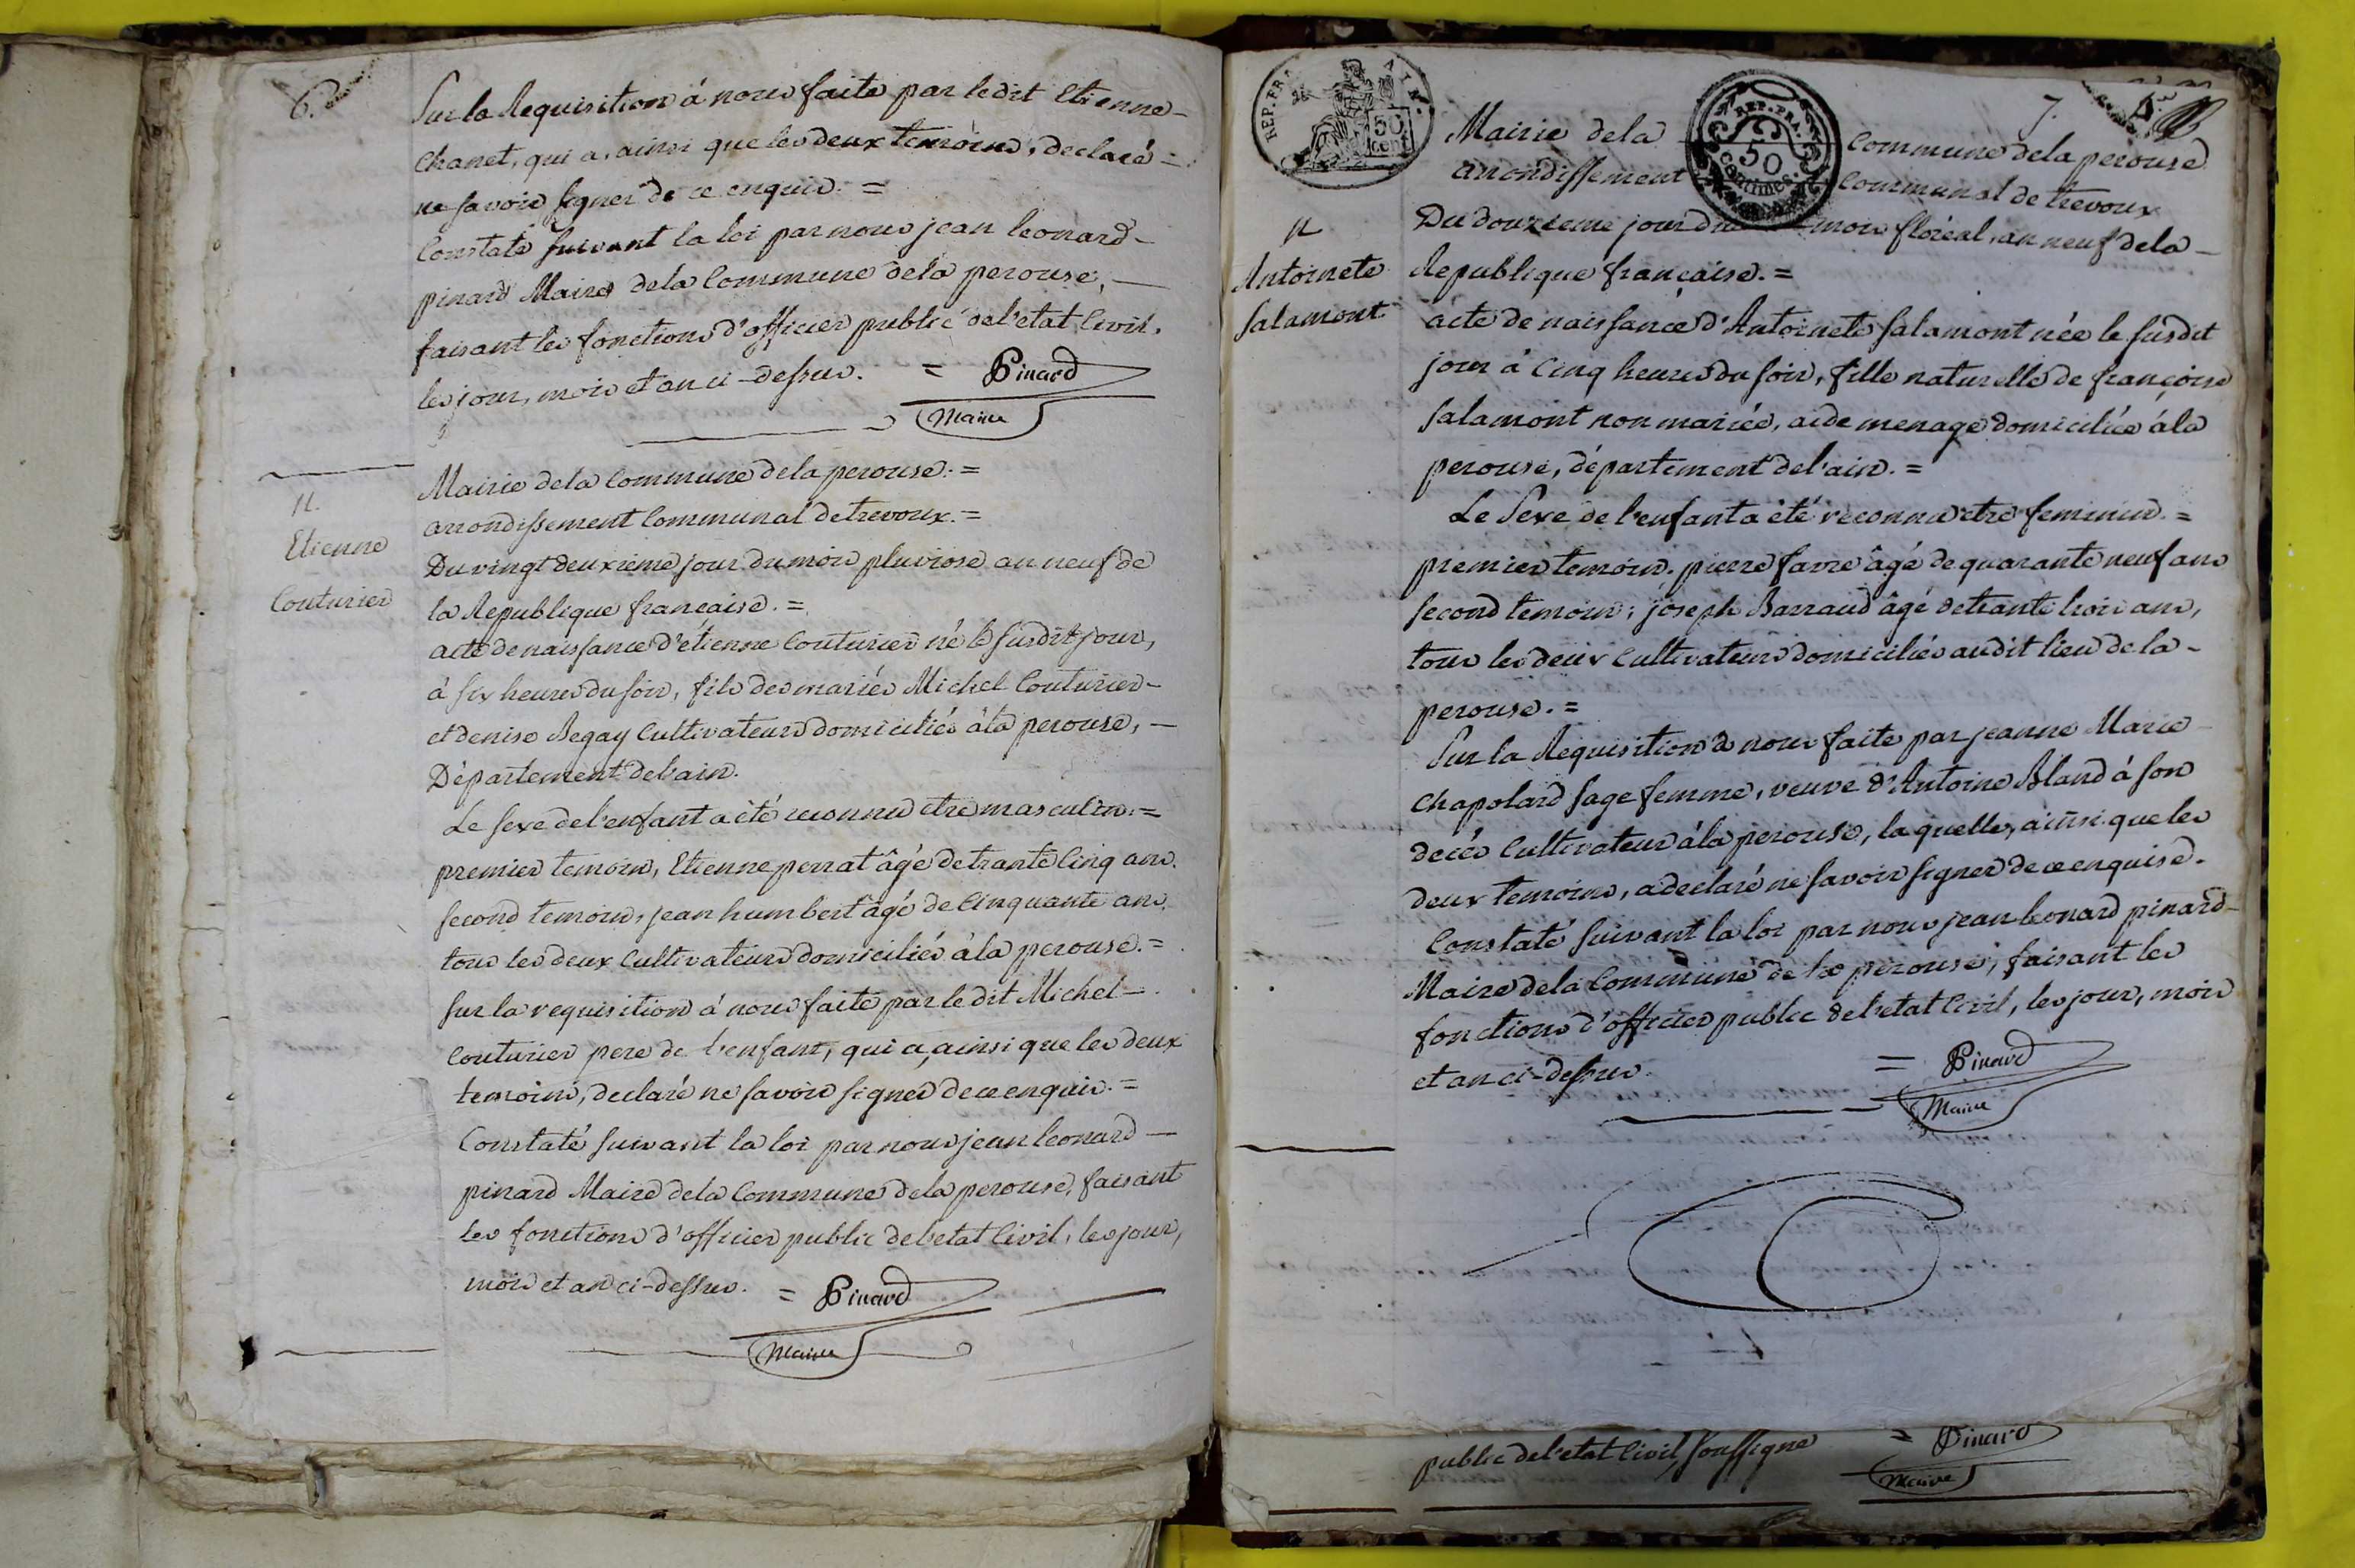 6.
Sur la Requisition á nous faite par ledit Etienne -
Chanet, qui a, ainsi que les deux temoins, declaré -
ne savoir signer de ce enquis. =
Constaté suivant la loi par nous jean leonard -
pinard Maire dela Commune dela perouse, —
faisant les fonctions d'officier public de l'etat Civil,
les jour, mois et an ci-dessus. = Pinard
Maire
N.
Etienne
Couturier
Mairie dela Commune dela perouse. =
arrondissement Communal de trevoux. =
Du vingt deuxieme jour du mois pluviose an neuf de
la Republique française. =
acte de naissance d'étienne Couturier né le susdit jour,
à six heures du soir, fils des mariés Michel Couturier -
et denise Begay Cultivateurs domiciliés à la perouse, —
Département de l'ain.
Le sexe de l'enfant a été reconnu etre masculin. =
premier temoin, Etienne perrat âgé de trante Cinq ans.
second temoin, jean humbert âgé de Cinquante ans,
tous les deux Cultivateurs domiciliés à la perouse. =
sur la requisition á nous faite par le dit Michel —
Couturier pere de l'enfant, qui a, ainsi que les deux
temoins, declaré ne savoir signer de ce enquis. =
Constaté suivant la loi par nous jean leonard —
pinard Maire dela Commune dela perouse, faisant
les fonctions d'officier public de l'etat Civil, les jour,
mois et an ci-dessus. = Pinard
Maire
REP. FRA
AIN.
50
cent
REP. FRA.
50
centimes.
7.
Mairie dela Commune dela perouse
arrondissement Communal de trevoux
N
Antoinete
Salamont
Du douxieme jour du mois floréal, an neuf dela -
Republique française. =
acte de naissance d'Antoinete Salamont née le susdit
jour à Cinq heures du soir, fille naturelle de françoise
Salamont non mariée, aide menage domiciliée á la
perouse, département de l'ain. =
Le Sexe de l'enfant a été reconnu etre feminin. =
premier temoin. pierre favre âgé de quarante neuf ans
second temoin; joseph Barraud âgé de trante trois ans,
tous les deux Cultivateurs domiciliés audit lieu de la -
perouse. =
Sur la Requisition à nous faite par jeanne Marie
Chapolard sage femme, veuve d'Antoine Bland á son
decés Cultivateur á la perouse, la quelle, ainsi que les
deux temoins, a declaré ne savoir signer de ce enquise.
Constaté suivant la loi par nous jean leonard pinard -
Maire dela Commune de la perouse, faisant les
fonctions d'officier public de l'etat Civil, les jour, mois
et an ci-dessus. = Pinard
Maire
public de l'etat Civil, soussigné = Pinard
Maire